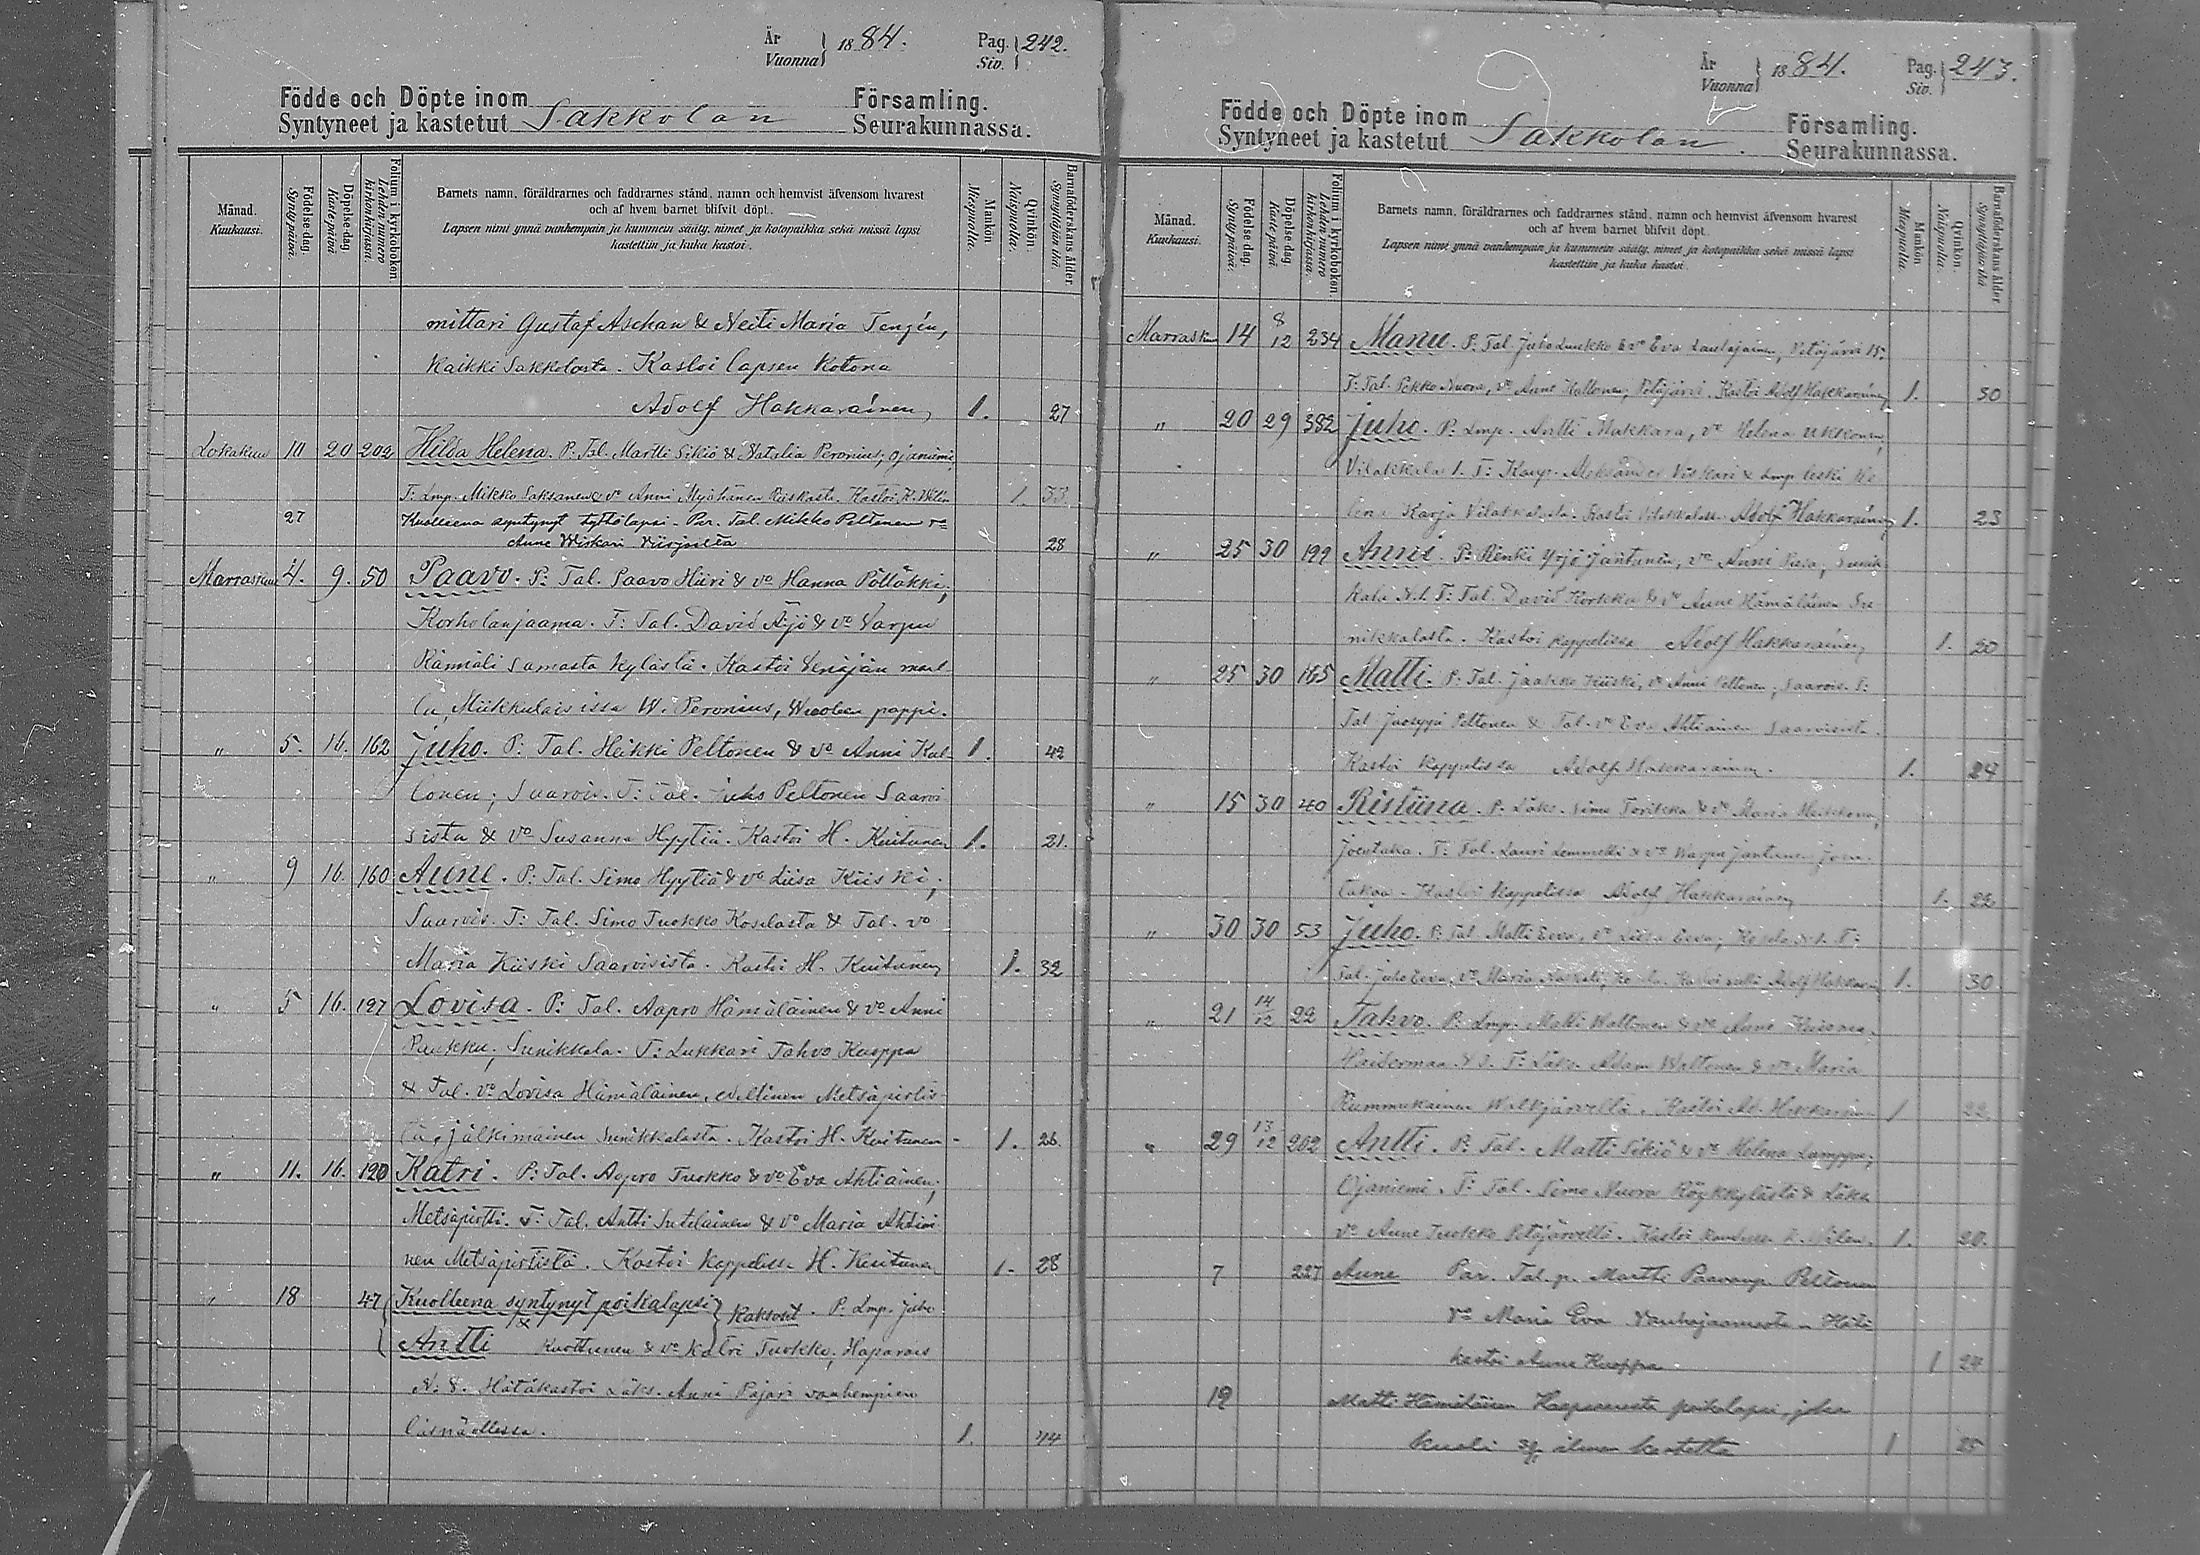 År
Vuonna } 1884. Pag. Siv. } 242.
Födde och Döpte inom Församling.
Syntyneet ja kastetut Sakkolan Seurakunnassa.
Månad. Kuukausi.
Födelse-dag. Syntypäivä.
Döpelse-dag. Kastepäivä.
Folium i kyrkoboken. Lehden numero kirkonkirjassa.
Barnets namn, föräldrarnes och faddrarnes stånd, namn och hemvist äfvensom hvarest
och af hvem barnet blifvit döpt.
Lapsen nimi ynnä vanhempain ja kummein sääty, nimet ja kotopaikka sekä missä lapsi
kastettiin ja kuka kastoi.
Mankön. Miespuolia.
Qvinkön. Naispuolia.
Barnaföderskans ålder. Synnyttäjän ikä.
mittari Gustaf Aschan & Neiti Maria Tengén,
kaikki Sakkolasta. Kastoi lapsen kotona
Adolf Hakkarainen, 1. 27
Lokakuu 10 20 202 Hilda Helena. P: Tal. Martti Sikiö & Natalia Peronius, Ojaniemi,
T: Lmp. Mikko Saksanen & vo Anni Myöhänen Riiskasta. Kastoi K. 1. 33.
27 Kuolleena syntynyt tyttölapsi. Par. Tal. Mikko Peltonen vo
Anne Wiskari 28
Marraskuu 4. 9. 50 Paavo. P: Tal. Paavo Hiiri & vo Hanna Pölläkki,
Korholanjaama. T: Tal. David Äijö & vo Varpu
Rämäli samasta kylästä. Kastoi Venäjän maal
la, Miikkulaisissa W. Peronius, Wuolen pappi.
" 5. 16. 162 Juho. P: Tal. Heikki Peltonen & vo Anni Kal 1. 42
lonen; Saarois. T: Tal. Juho Peltonen Saaroi
sista & vo Susanna Hyytiä. Kastoi H. Kuitunen 1. 21.
" 9 16. 160 Aune. P: Tal. Simo Hyytiä & vo Liisa Kiiski,
Saarois. T: Tal. Simo Tuokko Koselasta & Tal. vo
Maria Kiiski Saaroisista. Kastoi H. Kuitunen 1. 32
" 5 16. 127 Lovisa. P: Tal. Aapro Hämäläinen & vo Anni
Paukku, Sunikkala. T: Lukkari Tahvo Kuoppa
& Tal. vo Lovisa Hämäläinen, edellinen Metsäpirtis
tä, jälkimäinen Sunikkalasta. Kastoi H. Kuitunen 1. 26.
" 11. 16. 120 Katri. P: Tal. Aapro Tuokko & vo Eva Ahtiainen,
Metsäpirtti. T: Tal. Antti Sutelainen & vo Maria Ahtiai
nen Metsäpirtistä. Kastoi kappelissa H. Kuitunen 1. 28
" 18 47 Kuolleena syntynyt poikalapsi } kaksoset. P: Lmp. Juho
Antti Kuottunen & vo Katri Tuokko, Haparais
N: 8. Hätäkastoi Läks. Anni Pajari vanhempien
läsnäollessa. 1. 44
År
Vuonna } 1884. Pag. Siv. } 243.
Födde och Döpte inom Församling.
Syntyneet ja kastetut Sakkolan. Seurakunnassa.
Månad. Kuukausi.
Födelse-dag. Syntypäivä.
Döpelse-dag. Kastepäivä.
Folium i kyrkoboken. Lehden numero kirkonkirjassa.
Barnets namn, föräldrarnes och faddrarnes stånd, namn och hemvist äfvensom hvarest
och af hvem barnet blifvit döpt.
Lapsen nimi ynnä vanhempain ja kummein sääty, nimet ja kotopaikka sekä missä lapsi
kastettiin ja kuka kastoi.
Mankön. Miespuolia.
Qvinkön. Naispuolia.
Barnaföderskans ålder. Synnyttäjän ikä.
Marraskuu 14 8/12 234 Manu. P: Tal. Juho Luukko & vo Eva Laulajainen, Petäjärvi 15.
T: Tal. Pekko Nuora, vo Anne Kallonen, Petäjärvi. Kastoi Adolf Hakkarainen 1. 30
" 20 29 382 Juho. P: Lmp. Antti Mukkara, vo Helena Ukkonen,
Vilakkala 1. T: Kaup. Aleksander Viskari & Lmp. leski He
lena Karja Vilakkalasta. Kastoi Vilakkalassa Adolf Hakkarainen 1. 23
" 25 30 199 Anni. P: Renki Yrjö Jantunen, vo Anni, Sunik
kala N. 1. T: Tal. David Korkka & vo Anne Hämäläinen Su
nikkalasta. Kastoi kappelissa Adolf Hakkarainen 1. 20
" 25 30 165 Matti. P: Tal. Jaakko Kiiski, vo Anni Peltonen, Saarois. T:
Tal. Juoseppi Peltonen & Tal. vo Eva Ahtiainen Saaroisista.
Kastoi kappelissa Adolf Hakkarainen. 1. 24
" 15 30 40 Ristiina. P: Läks. Simo Torikka & vo Maria,
Joentaka. T: Tal. Lauri Lemmetti & vo Warpu Jantunen Joen
takaa. Kastoi kappelissa Adolf Hakkarainen 1. 22
" 30 30 53 Juho. P: Tal. Matti Eeva, vo Liisa Eeva, Kosela. T:
Tal. Juho Eeva, vo Maria, Kosela. Kastoi Adolf Hakkarainen 1. 30
" 21 14/12 22 Tahvo. P: Lmp. Matti Waltonen & vo Anne
Haiderman. T: Läks. Adam Waltonen & vo Maria
Rummukainen Walkjärveltä. Kastoi Ad. Hakkarainen 1 22
" 29 13/12 202 Antti. P: Tal. Matti Sikiö & vo Helena Lamppu,
Ojaniemi. T: Tal. Simo Nuora Röykkylästä & Läks.
vo Anne Tuokko Petäjärveltä. Kastoi 1. 20.
7 227 Aune Par. Tal. p. Martti Paavonp. Peltonen
vo Maria Eva Vanhajaamasta. Hätä
kastoi Anne Kuoppa. 1 24
19 Matti Hämäläinen Haparaisista poikalapsi, joka
kuoli ilman kastetta 1 25